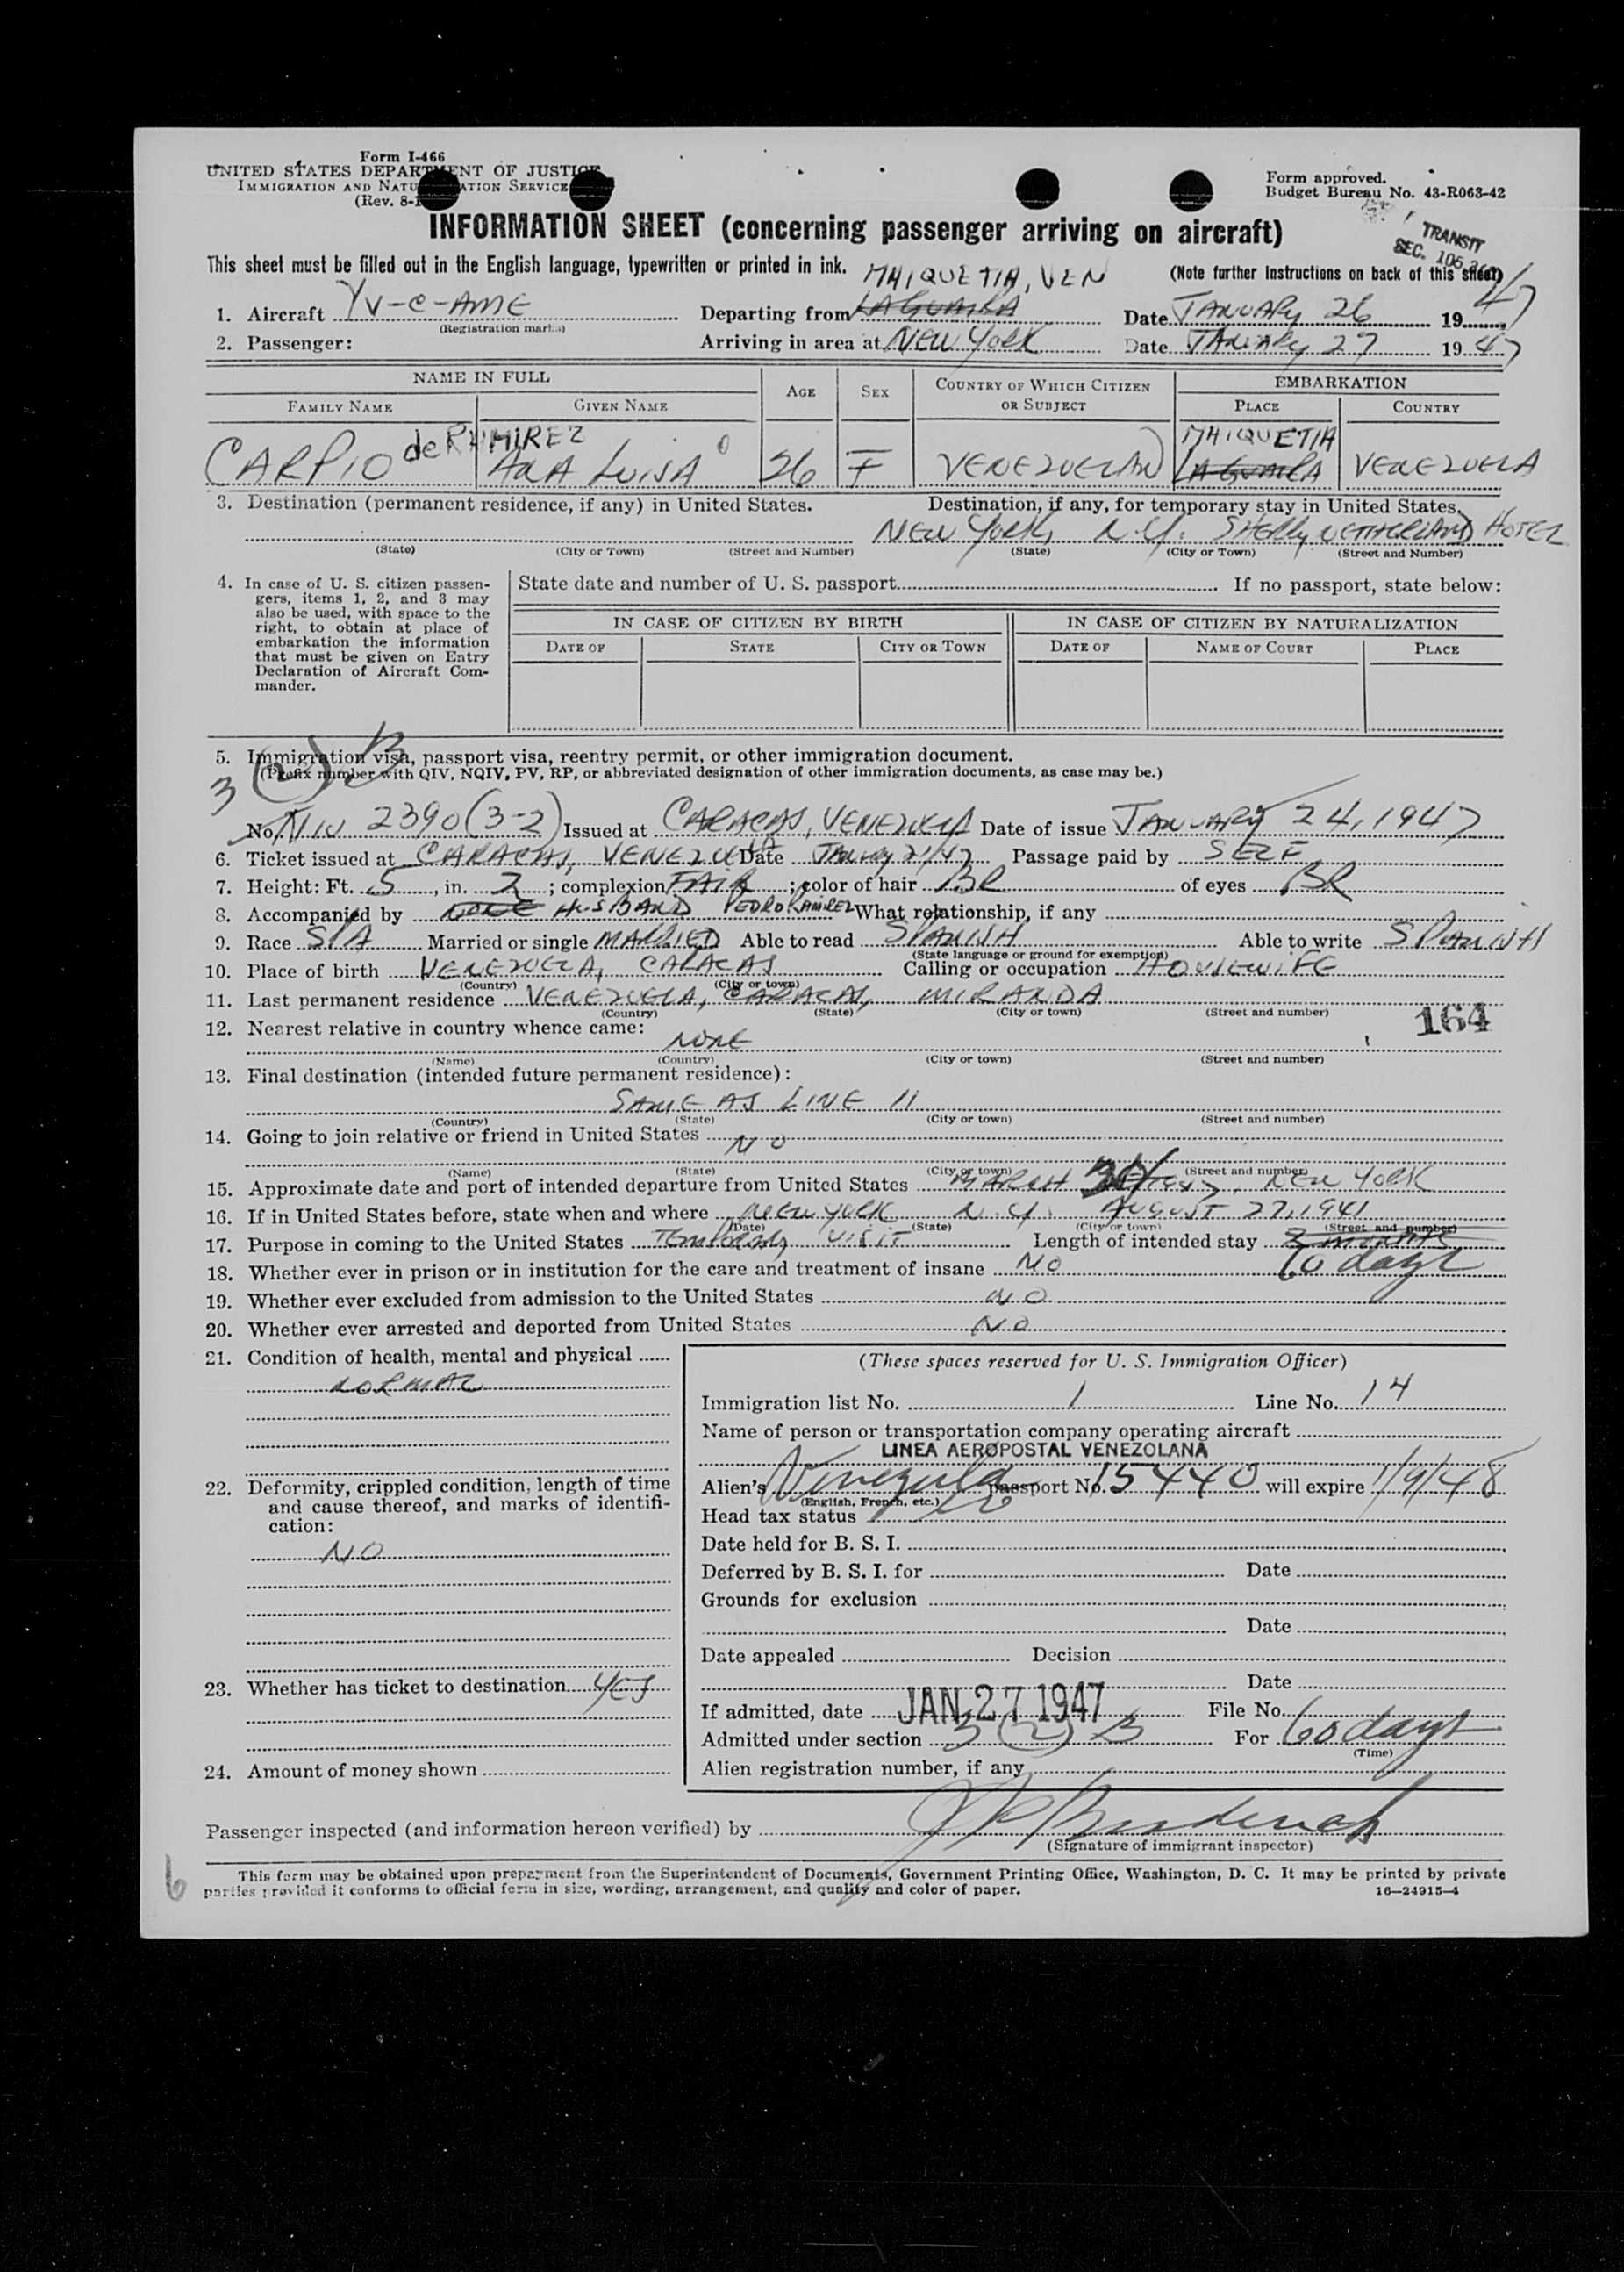 Form I-466
UNITED STATES DEPARTMENT OF JUSTICE
IMMIGRATION AND NATURALIZATION SERVICE
(Rev. 8-
Form approved.
Budget Bureau No. 43-R063-42
TRANSIT
SEC.
INFORMATION SHEET (concerning passenger arriving on aircraft)
This sheet must be filled out in the English language, typewritten or printed in ink. (Note further instructions on back of this sheet)
MAIQUETIA, VEN
1. Aircraft YV-C-AME Departing from LA GUAIRA Date JANUARY 26 1947
(Registration marks)
2. Passenger: Arriving in area at NEW YORK Date JANUARY 27 1947
NAME IN FULL AGE SEX COUNTRY OF WHICH CITIZEN OR SUBJECT EMBARKATION
FAMILY NAME GIVEN NAME PLACE COUNTRY
de RAMIREZ MAIQUETIA
CARPIO ANA LUISA 26 F VENEZUELAN LA GUAIRA VENEZUELA
3. Destination (permanent residence, if any) in United States. Destination, if any, for temporary stay in United States.
NEW YORK, N.Y. SHERRY NETHERLAND HOTEL
(State) (City or Town) (Street and Number) (State) (City or Town) (Street and Number)
4. In case of U. S. citizen passengers, items 1, 2, and 3 may also be used, with space to the right, to obtain at place of embarkation the information that must be given on Entry Declaration of Aircraft Commander.
State date and number of U. S. passport If no passport, state below:
IN CASE OF CITIZEN BY BIRTH IN CASE OF CITIZEN BY NATURALIZATION
DATE OF STATE CITY OR TOWN DATE OF NAME OF COURT PLACE
5. Immigration visa, passport visa, reentry permit, or other immigration document.
(Prefix number with QIV, NQIV, PV, RP, or abbreviated designation of other immigration documents, as case may be.)
3 (2) B
No. 2390 (3-2) Issued at CARACAS, VENEZUELA Date of issue JANUARY 24, 1947
6. Ticket issued at CARACAS, VENEZUELA Date Passage paid by SELF
7. Height: Ft. 5, in. 2; complexion FAIR; color of hair BR of eyes BR
8. Accompanied by NONE HUSBAND PEDRO RAMIREZ What relationship, if any
9. Race SPA Married or single MARRIED Able to read SPANISH Able to write SPANISH
(State language or ground for exemption)
10. Place of birth VENEZUELA, CARACAS Calling or occupation HOUSEWIFE
(Country) (City or town)
11. Last permanent residence VENEZUELA, CARACAS, MIRANDA
(Country) (State) (City or town) (Street and number)
164
12. Nearest relative in country whence came:
NONE
(Name) (Country) (City or town) (Street and number)
13. Final destination (intended future permanent residence):
SAME AS LINE 11
(Country) (State) (City or town) (Street and number)
14. Going to join relative or friend in United States NO
(Name) (State) (City or town) (Street and number)
15. Approximate date and port of intended departure from United States MARCH NEW YORK
16. If in United States before, state when and where NEW YORK N.Y. AUGUST 27, 1941
(Date) (State) (City or town) (Street and number)
17. Purpose in coming to the United States TEMPORARY VISIT Length of intended stay 3 MONTHS
60 days
18. Whether ever in prison or in institution for the care and treatment of insane NO
19. Whether ever excluded from admission to the United States NO
20. Whether ever arrested and deported from United States NO
21. Condition of health, mental and physical
NORMAL
22. Deformity, crippled condition, length of time and cause thereof, and marks of identification:
NO
23. Whether has ticket to destination YES
24. Amount of money shown
(These spaces reserved for U. S. Immigration Officer)
Immigration list No. 1 Line No. 14
Name of person or transportation company operating aircraft
LINEA AEROPOSTAL VENEZOLANA
Alien's Venezuela passport No. 15440 will expire 1/9/48
(English, French, etc.)
Head tax status
Date held for B. S. I.
Deferred by B. S. I. for Date
Grounds for exclusion
Date
Date appealed Decision
Date
If admitted, date JAN 27 1947 File No.
Admitted under section 3 (2) B For 60 days
(Time)
Alien registration number, if any
Passenger inspected (and information hereon verified) by
(Signature of immigrant inspector)
6
This form may be obtained upon prepayment from the Superintendent of Documents, Government Printing Office, Washington, D. C. It may be printed by private
parties provided it conforms to official form in size, wording, arrangement, and quality and color of paper.
16—24915-4